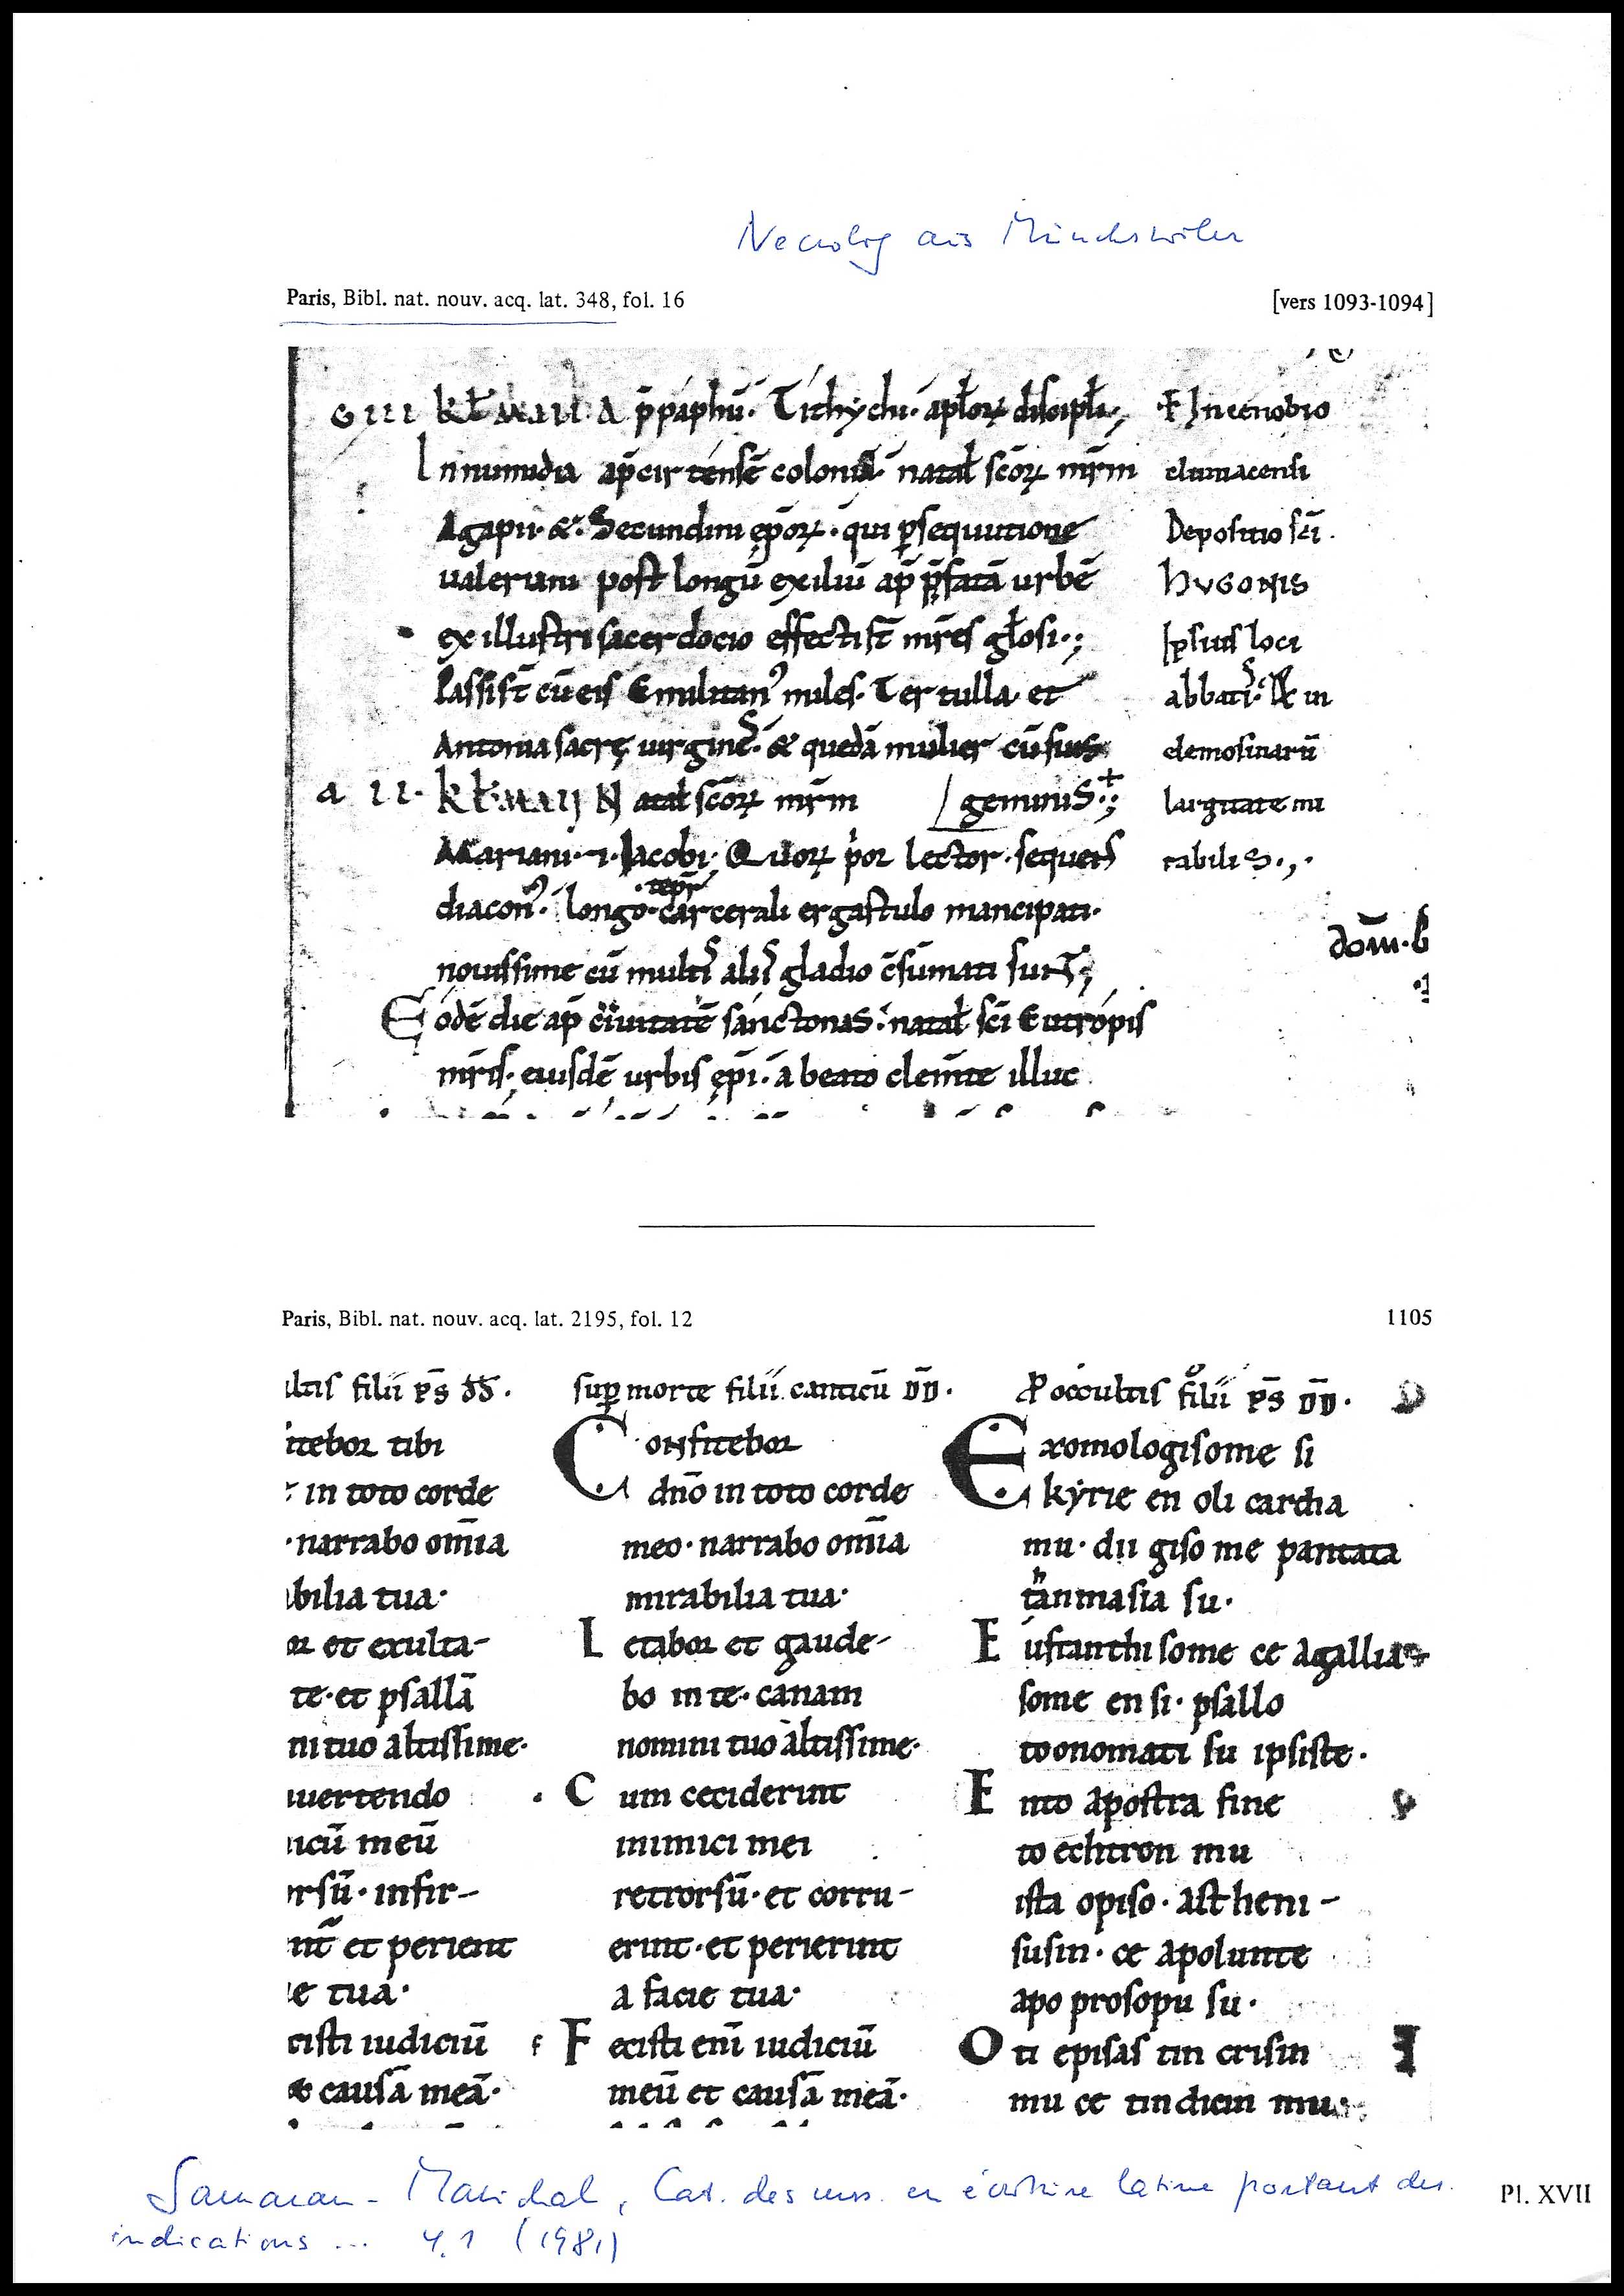 Necrolog aus Münchenwiler
Paris, Bibl. nat. nouv. acq. lat. 348, fol. 16
[vers 1093-1094]
G III kł. MAII A p̄ páphū. Tithychi. apłoꝝ discipłi;
In numidia ap̄ cirtensē colonia. natał scōꝝ mr̄m
Agapii. &. Secundini ep̄oꝝ. qui ꝑsequutione
ualeriani post longū exiliū ap̄ p̄fatā urbē
ex illustri sacerdocio effecti st̄ mr̄es głosi.;
Passi st̄ cū eis Emilianꝰ miles. Tertulla. et
Antonia sacrę uirgines. & quedā mulier cū suis
a II. kł. MAII Natał scōꝝ mr̄m
geminis.;
Mariani. ⁊. Iacobi. Quoꝝ p̍or lector. sequens
diaconꝰ. longo. carcerali ergastulo mancipati.
nouissime cū multis aliis gladio c̄sūmati sunt;
Eodē die ap̄ ciuitatē sanctonas. natał sc̄i Eutropis
mr̄is. eiusdē urbis ep̄i. a beato clem̄te illuc
In cenobio
cluniacensi
Depositio sc̄i.
hVGONIS
Ipsius loci
abbatis.
elemosinarū
largitate mi
rabilis.,.
dom̄. b
Paris, Bibl. nat. nouv. acq. lat. 2195, fol. 12
1105
ultis filii ps̄ dd̄.
itebor tibi
in toto corde
narrabo om̄ia
bilia tua.
or et exulta-
te. et psallā
ni tuo altissime.
uertendo
icū meū
rsū. infir-
nt̄ et perient
e tua.
cisti iudiciū
& causā meā.
suꝑ morte filii canticū DD̄.
Confitebor
dn̄o in toto corde
meo. narrabo om̄ia
mirabilia tua.
Letabor et gaude-
bo in te. canam
nomini tuo altissime.
Cum ceciderint
inimici mei
retrorsū. et corru-
erint. et perierint
a facie tua.
Fecisti eni̅ iudiciū
meū et causā meā.
Ꝓ occultis filii ps̄ DD̄.
Exomologisome si
kẏrie en oli cardia
mu. dii giso me pantata
tanmasia su.
Eufranthisome ce agallia
some en si. psallo
to onomati su ipsiste.
Ento apostra fine
to echtron mu
ista opiso. astheni-
susin. ce apolunte
apo prosopu su.
Oti episas tin crisin
mu ce tin dicin mu.
Samaran - Marichal, Cat. des mss. en écriture latine portant des
indications ... 4,1 (1981)
Pl. XVII